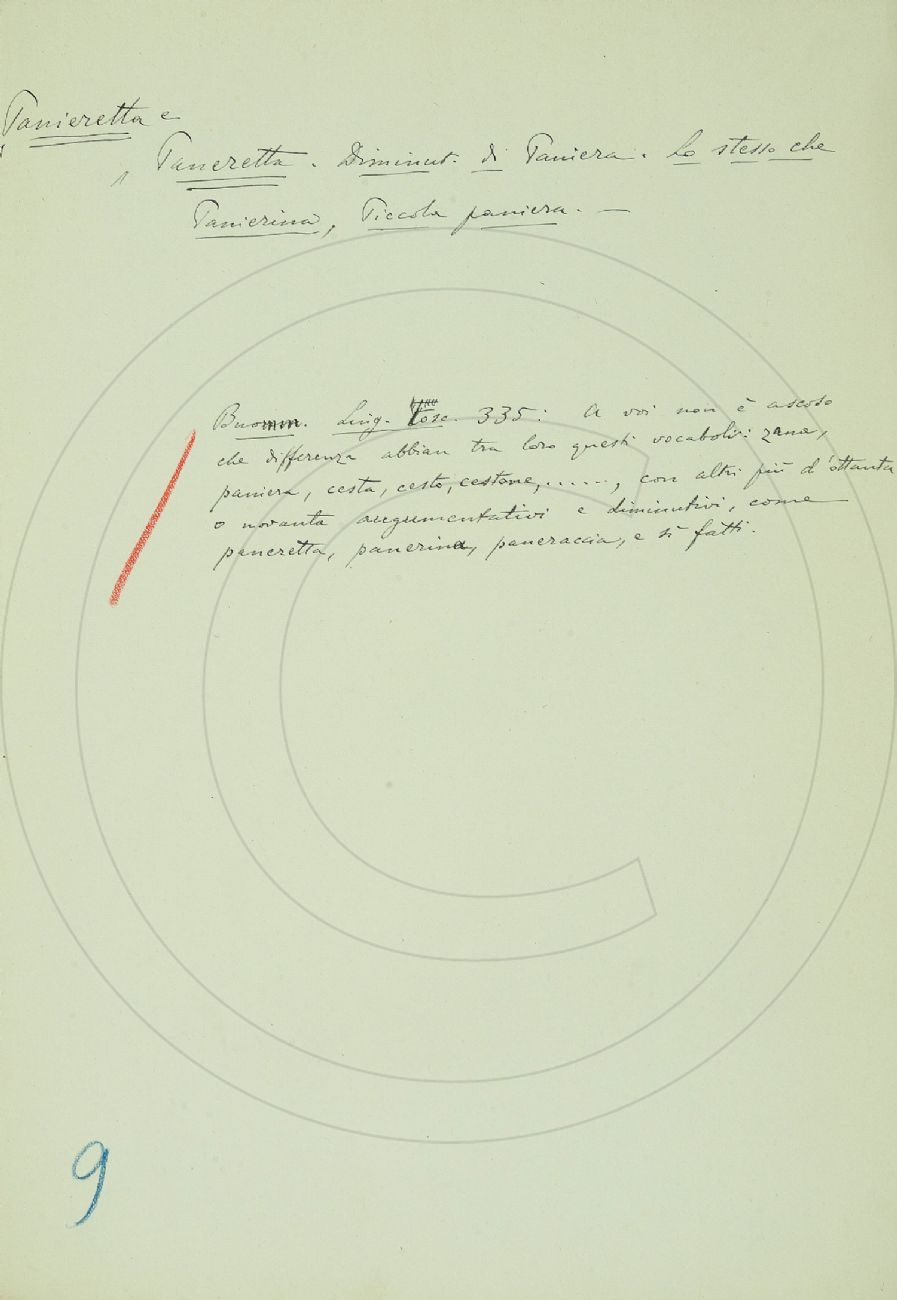 Panieretta e
Paneretta. Diminut. di Paniera. Lo stesso che
Panierina, Piccola paniera. —
Buomm. Ling. Tosc. 335: A voi non è ascoso
che differenza abbian tra loro questi vocaboli: zana,
paniera, cesta, cesto, cestone, ......, con altri più d'ottanta
o novanta augumentativi e diminutivi, come
paneretta, panerina, paneraccia, e sì fatti.
9